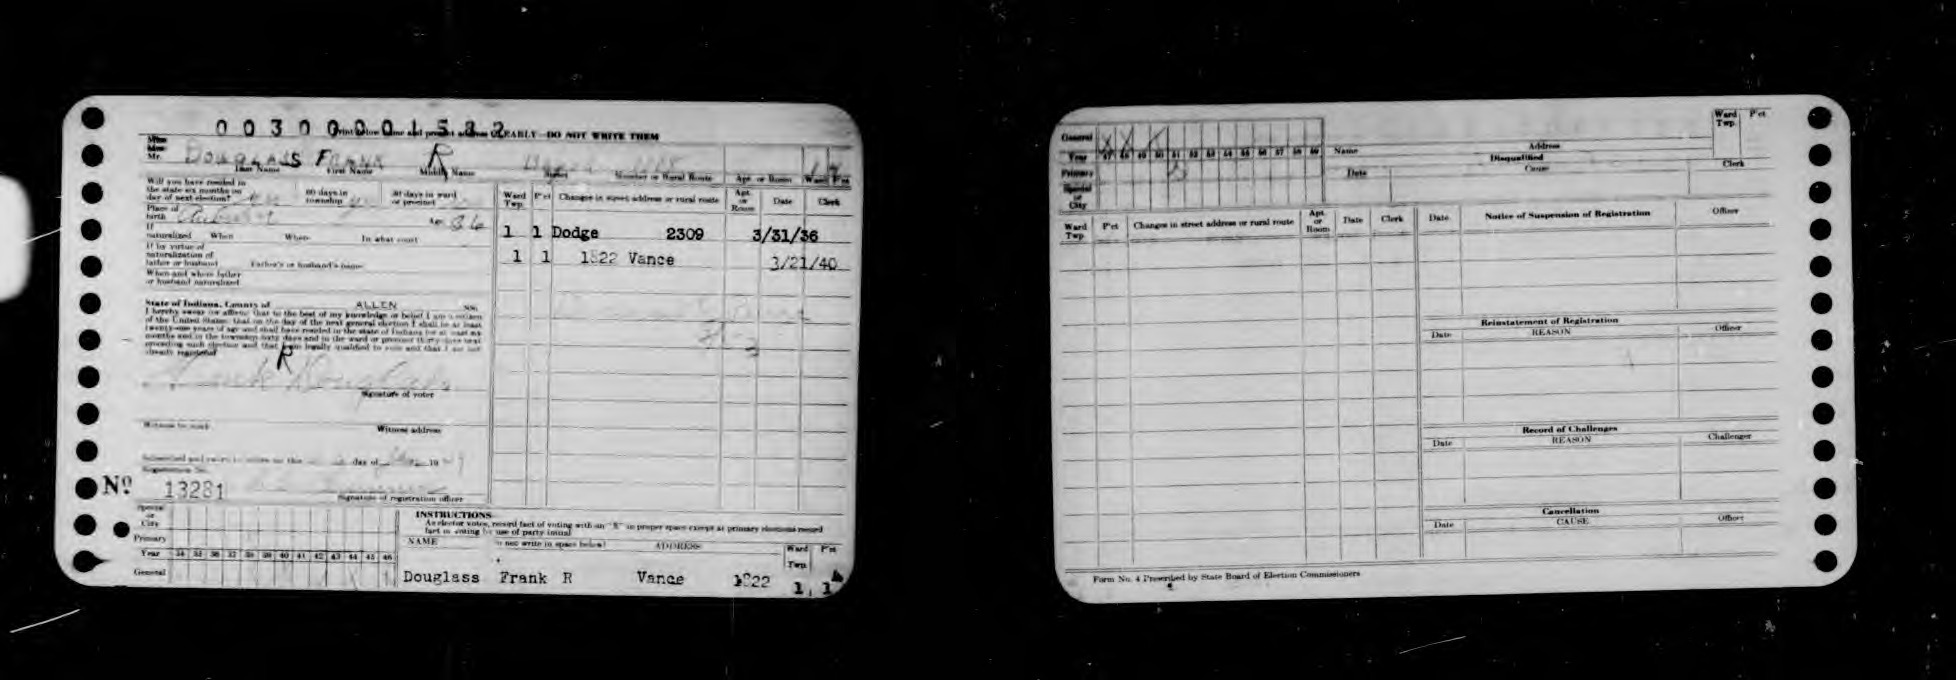 00300001582
Print below name and present address CLEARLY—DO NOT WRITE THEM
Miss
Mrs.
Mr. DOUGLASS FRANK R
Last Name First Name Middle Name Street Number or Rural Route Apt. or Room Ward P'ct
Will you have resided in
the state six months on
day of next election?
60 days in
township
30 days in ward
or precinct
Place of
birth Auburn Age 36
If
naturalized When Where In what court
If by virtue of
naturalization of
father or husband Father's or husband's name
When and where father
or husband naturalized
State of Indiana, County of ALLEN SS:
I hereby swear (or affirm) that to the best of my knowledge or belief I am a citizen
of the United States; that on the day of the next general election I shall be at least
twenty-one years of age and shall have resided in the state of Indiana for at least six
months and in the township sixty days and in the ward or precinct thirty days next
preceding such election and that I am legally qualified to vote and that I am not
already registered
R
Frank Douglass
Signature of voter
Witness to mark Witness address
Subscribed and sworn to before me this day of 19
Registration No.
No. 13281
Signature of registration officer
Ward
Twp. P'ct Changes in street address or rural route Apt.
or
Room Date Clerk
1 1 Dodge 2309 3/31/36
1 1 1822 Vance 3/21/40
Special
or
City
Primary
Year 34 35 36 37 38 39 40 41 42 43 44 45 46
General
INSTRUCTIONS
As elector votes, record fact of voting with an "X" in proper space except at primary elections record
fact of voting by use of party initial
NAME (Do not write in space below) ADDRESS Ward
Twp. P'ct
Douglass Frank R Vance 1822 1, 1
General X X
Year 47 48 49 50 51 52 53 54 55 56 57 58 59
Primary
Special
or
City
Name Address Ward
Twp. P'ct
Disqualified
Date Cause Clerk
Ward
Twp. P'ct Changes in street address or rural route Apt.
or
Room Date Clerk
Date Notice of Suspension of Registration Officer
Reinstatement of Registration
Date REASON Officer
Record of Challenges
Date REASON Challenger
Cancellation
Date CAUSE Officer
Form No. 4 Prescribed by State Board of Election Commissioners